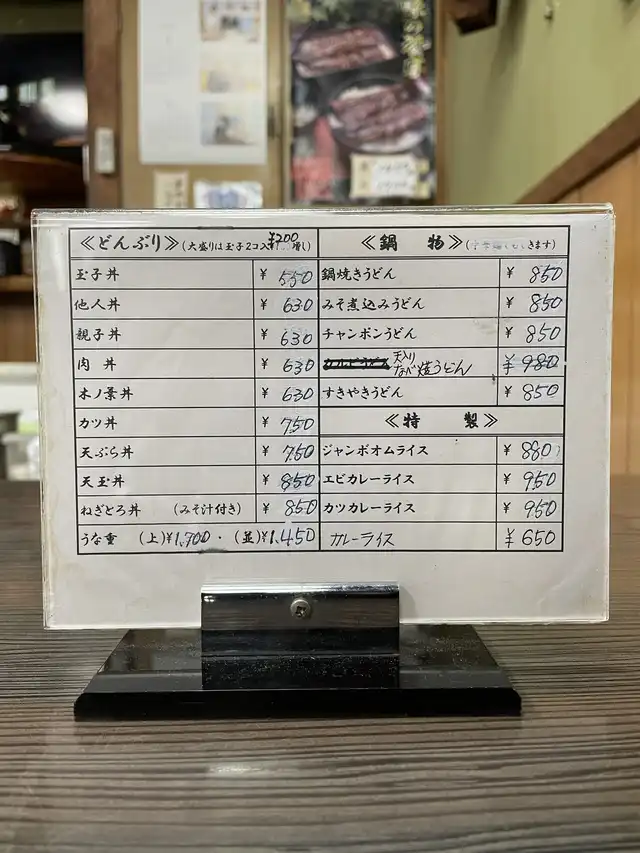 ≪どんぶり≫(大盛りは玉子2コ入 ¥200増し)
玉子丼 ¥550
他人丼 ¥630
親子丼 ¥630
肉丼 ¥630
木ノ葉丼 ¥630
カツ丼 ¥750
天ぷら丼 ¥750
天玉丼 ¥850
ねぎとろ丼 (みそ汁付き) ¥850
うな重 (上)¥1,900・(並)¥1,450
≪鍋物≫
きます)
鍋焼きうどん ¥850
みそ煮込みうどん ¥850
チャンポンうどん ¥850
天入りなべ焼うどん ¥980
すきやきうどん ¥850
≪特製≫
ジャンボオムライス ¥880
エビカレーライス ¥950
カツカレーライス ¥950
カレーライス ¥650